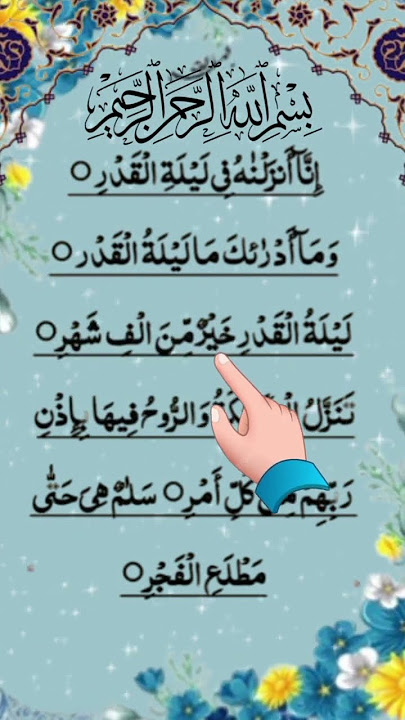 بِسْمِ اللّٰهِ الرَّحْمٰنِ الرَّحِيْمِ
اِنَّاۤ اَنْزَلْنٰهُ فِیْ لَیْلَةِ الْقَدْرِ ○
وَمَاۤ اَدْرٰىكَ مَا لَیْلَةُ الْقَدْرِ ○
لَیْلَةُ الْقَدْرِ خَیْرٌ مِّنَ اَلْفِ شَهْرٍ ○
تَنَزَّلُ وَالرُّوْحُ فِیْهَا بِاِذْنِ
رَبِّهِمْ كُلِّ اَمْرٍ ○ سَلٰمٌ هِیَ حَتّٰى
مَطْلَعِ الْفَجْرِ ○